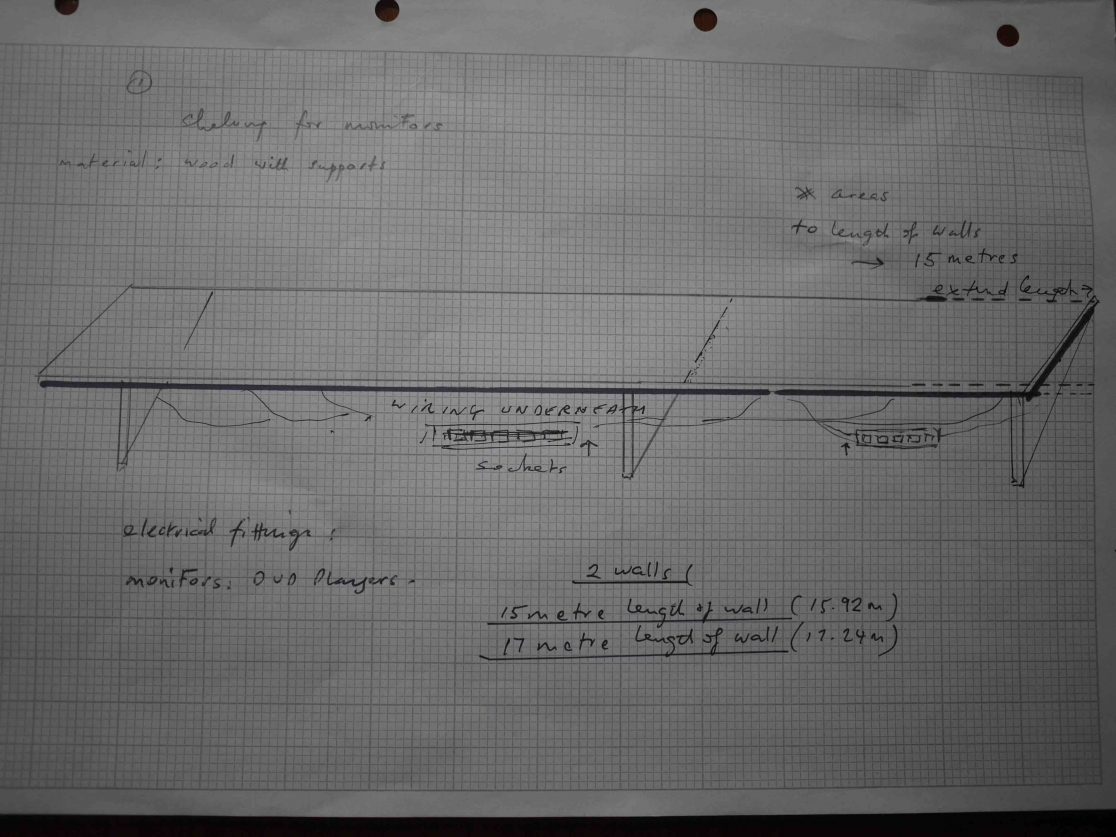 1
shelving for monitors
material: wood with supports
* areas
to length of walls
→ 15 metres
extend length →
WIRING UNDERNEATH
sockets
electrical fittings:
monitors: DVD Players.
2 walls (
15 metre length of wall (15.92m)
17 metre length of wall (17.24m)